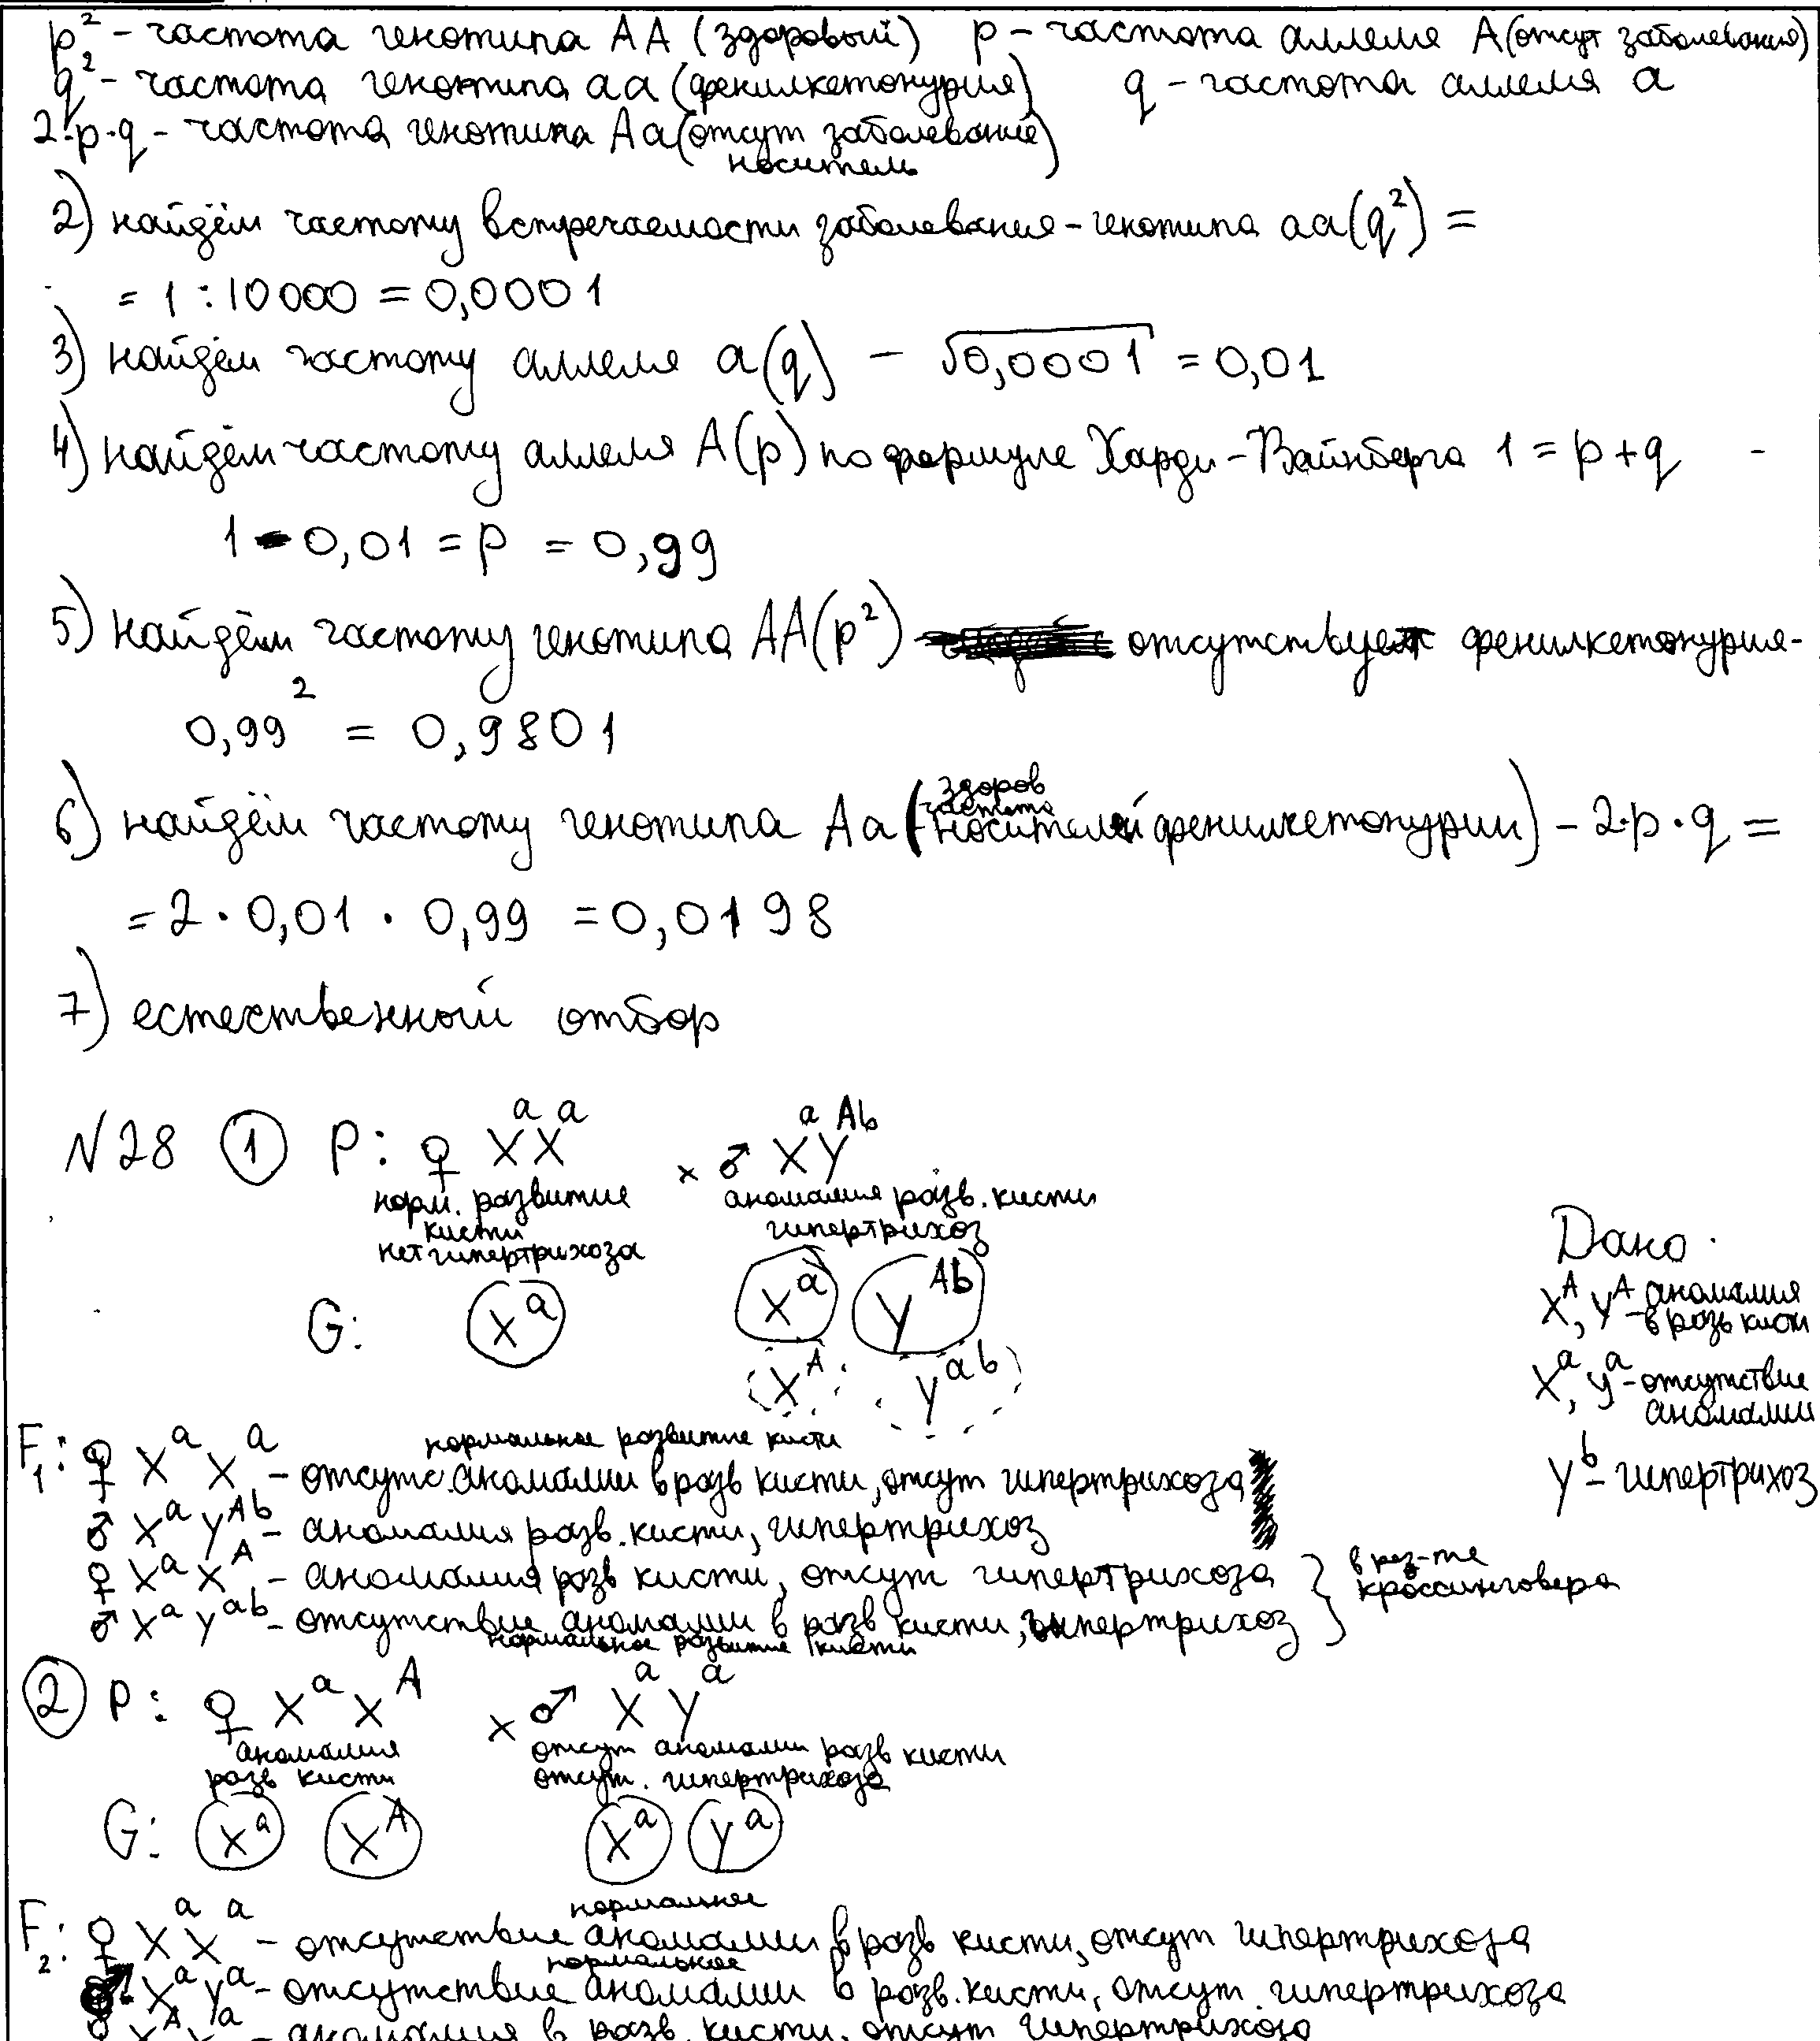 p² - частота генотипа AA (здоровый)  p - частота аллеля A (отсут заболевания)
q² - частота генотипа aa (фенилкетонурия)  q - частота аллеля a
2·p·q - частота генотипа Aa (отсут заболевание)
носитель
2) найдём частоту встречаемости заболевания - генотипа aa(q²) =
= 1 : 10000 = 0,0001
3) найдём частоту аллеля a(q) - √0,0001 = 0,01
4) найдём частоту аллеля A(p) по формуле Харди-Вайнберга 1 = p + q -
1 - 0,01 = p = 0,99
5) найдём частоту генотипа AA(p²) отсутствует фенилкетонурия -
0,99² = 0,9801
здоров
6) найдём частоту генотипа Aa (носителей фенилкетонурии) - 2·p·q =
= 2 · 0,01 · 0,99 = 0,0198
7) естественный отбор
N28 ① P: ♀ XᵃXᵃ × ♂ XᵃYᴬᵇ
норм. развитие аномалия разв. кисти
кисти гипертрихоз
нет гипертрихоза
Дано
G: Xᵃ Xᵃ Yᴬᵇ
Xᴬ, Yᴬ - аномалия
в разв кисти
Xᴬ Yᵃᵇ
Xᵃ, Yᵃ - отсутствие
аномалии
Yᵇ - гипертрихоз
нормальное развитие кисти
F₁: ♀ XᵃXᵃ - отсутс. аномалии в разв кисти, отсут гипертрихоза
♂ XᵃYᴬᵇ - аномалия разв. кисти, гипертрихоз
♀ XᵃXᴬ - аномалия разв кисти, отсут гипертрихоза } в рез-те
кроссинговера
♂ XᵃYᵃᵇ - отсутствие аномалии в разв кисти, гипертрихоз
нормальное развитие кисти
② P: ♀ XᵃXᴬ × ♂ XᵃYᵃ
аномалия отсут аномалии разв кисти
разв кисти отсут. гипертрихоза
G: Xᵃ Xᴬ Xᵃ Yᵃ
нормальное
F₂: ♀ XᵃXᵃ - отсутствие аномалии в разв кисти, отсут гипертрихоза
нормальное
♂ XᵃYᵃ - отсутствие аномалии в разв. кисти, отсут. гипертрихоза
- аномалия в разв. кисти, отсут гипертрихоза